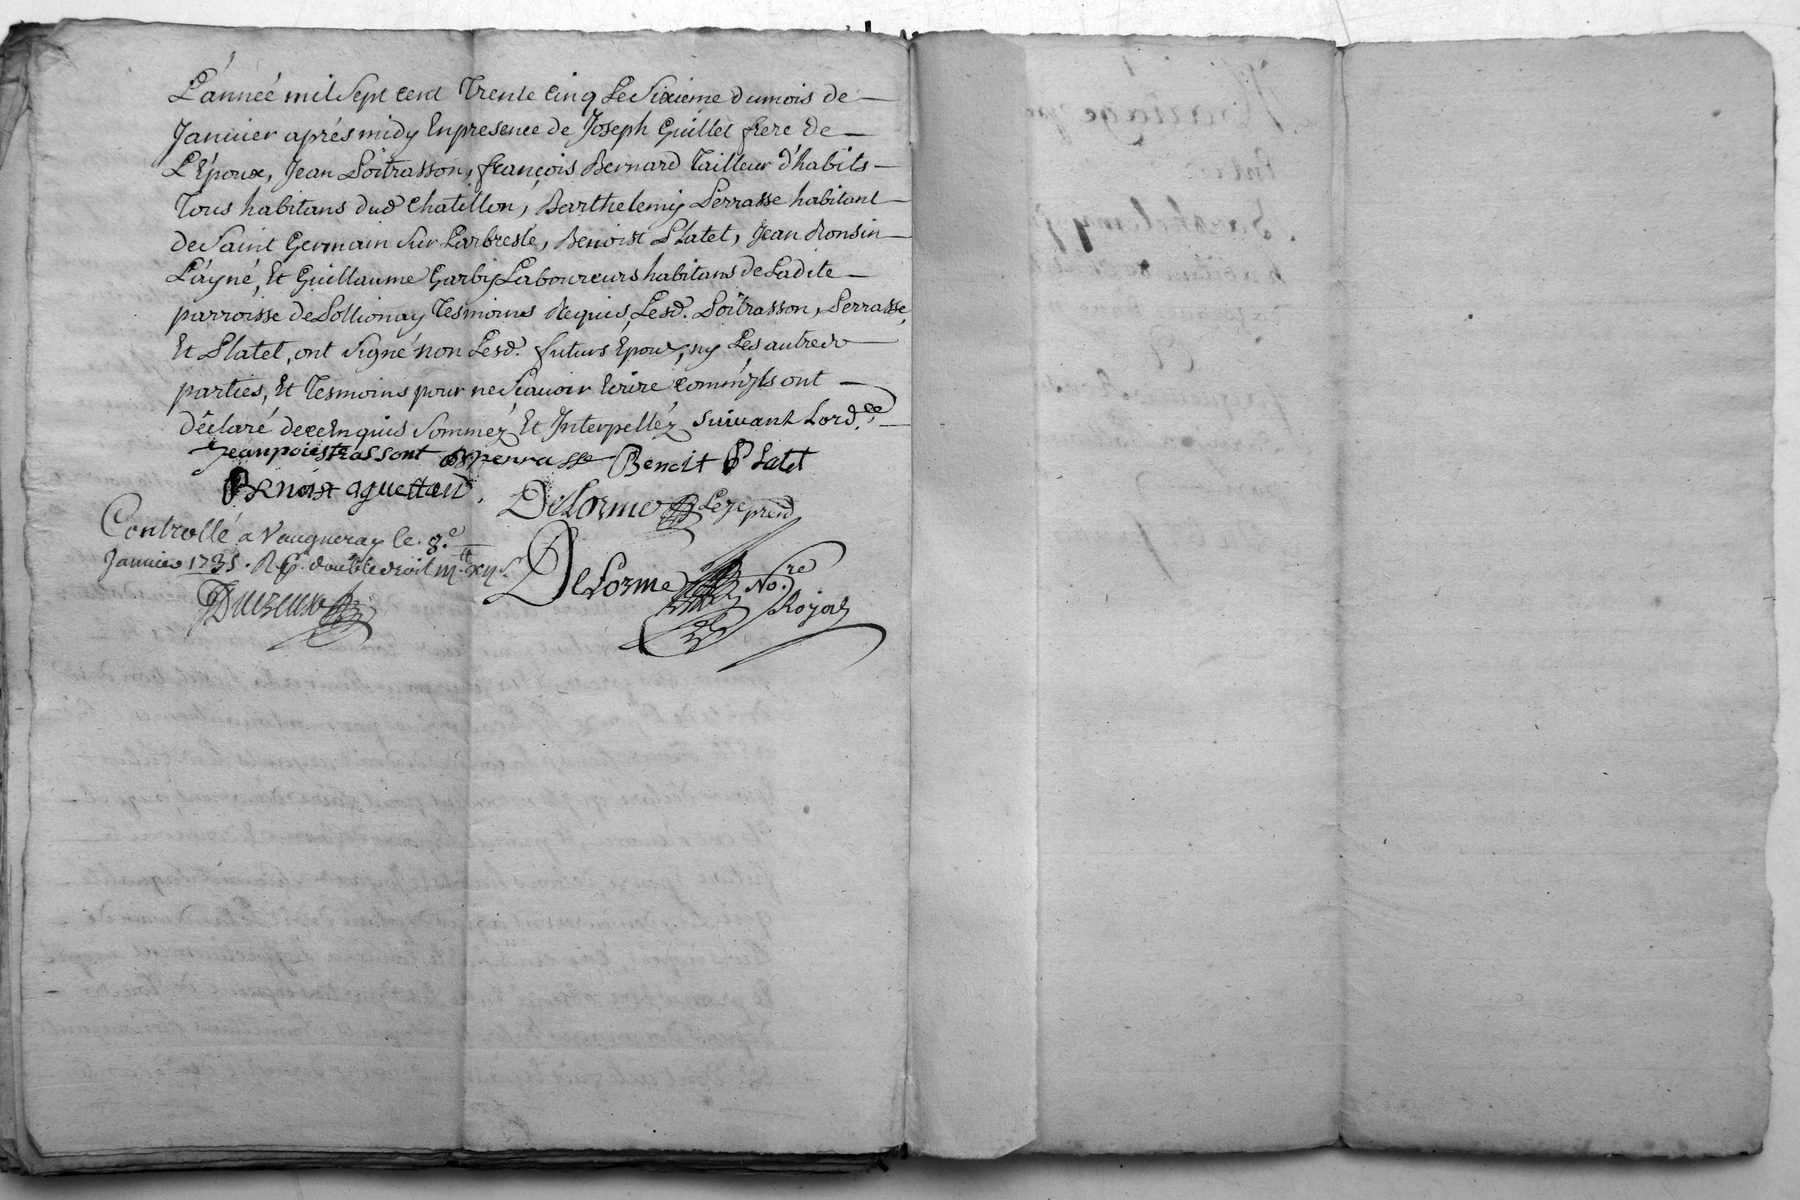 L'année mil Sept cent Trente Cinq Le Sixieme du mois de
Januier aprés midy En presence de Joseph Guillet frere de
L'Epoux, Jean Poitrasson, françois Bernard Tailleur d'habits
Tous habitans dud Chatillon, Barthelemy Perrasse habitant
de Saint Germain Sur Larbresle, Benoist Platet, Jean Ronsin
L'ayné, Et Guillaume Garby Laboureurs habitans de Ladite
parroisse de Pollionay Tesmoins Requis, Lesd. Poitrasson, Perrasse,
Et Platet, ont Signé non Lesd. futurs Epoux, ny Les autres
parties, Et Tesmoins pour ne Sçauoir Ecrire comm'ils ont
déclaré de ce Enquis Sommez Et Interpellez Suivant Lord.ce
Jean poiestrassont perrasse Benoit Platet
Benoist aguettand
Delorme
Controllé a Vaugneray le 8.e
Januier 1735. R
double droit
Delorme No.re
Royal